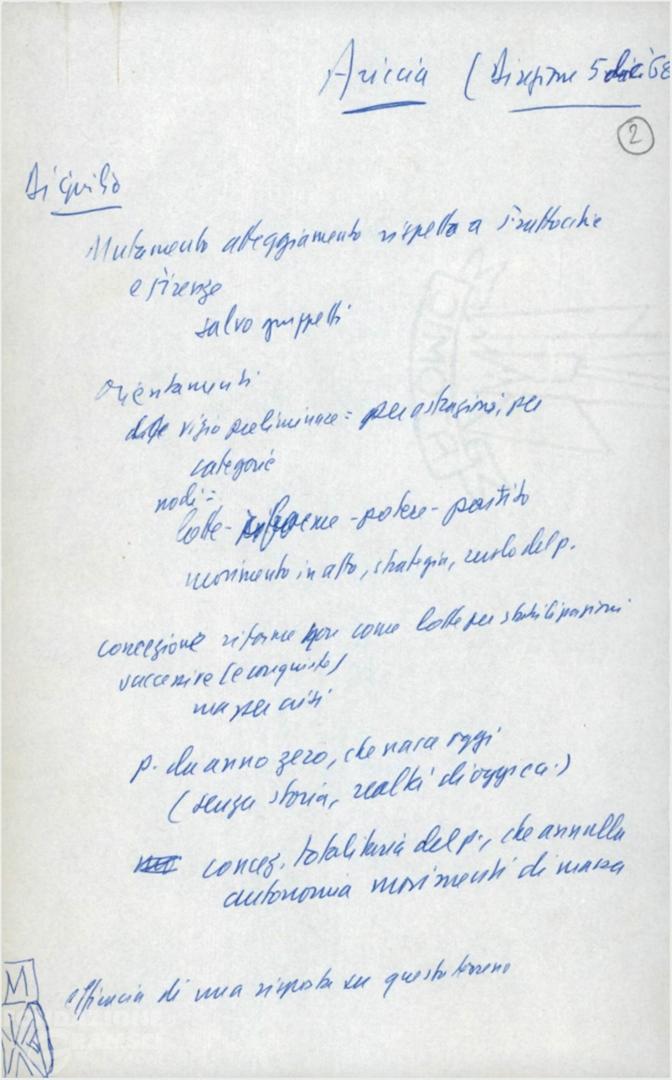 Ariccia (Direzione 5 dic. 68
2
Di Giulio
Mutamento atteggiamento rispetto a Frattocchie
e Firenze
salvo gruppetti
Orientamenti
vizio preliminare = per astrazioni, per
categorie
nodi =
lotte - riforme - potere - partito
movimento in atto, strategia, ruolo del p.
concezione riforme non come lotte per stabilizzazioni
successive (e conquiste)
ma per crisi
p. da anno zero, che nasca oggi
(senza storia, realtà di oggi ca.)
concez. totalitaria del p., che annulla
autonomia movimenti di massa
efficacia di una risposta su questo terreno
M